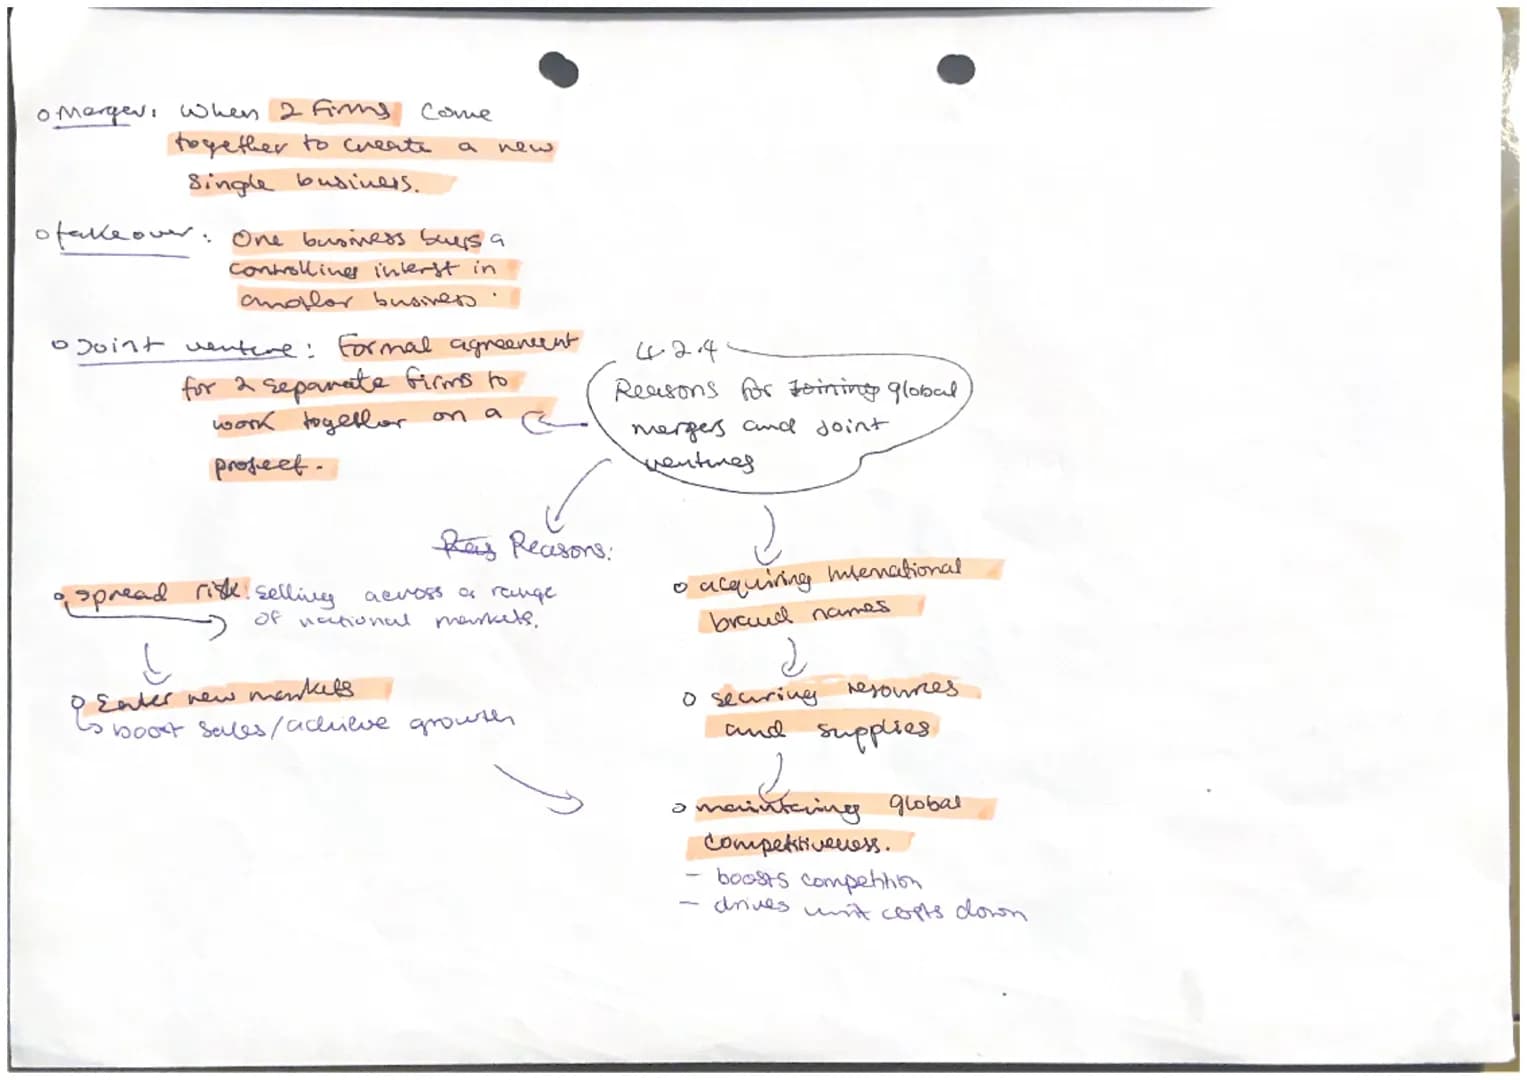 Merger: When 2 firms come
together to create a new
single business.
takeover: One business buys a
controlling interst in
another business.
Joint venture: Formal agreement
for 2 separate firms to
work together on a
project.
4.2.4
Reasons for Joining global
mergers and Joint
ventures
Key Reasons:
spread risk: selling across a range
of national markets.
Enter new markets
boost sales/achieve growth
acquiring International
brand names
securing resources
and supplies
maintaining global
competitiveness.
- boosts competition
- drives unit costs down